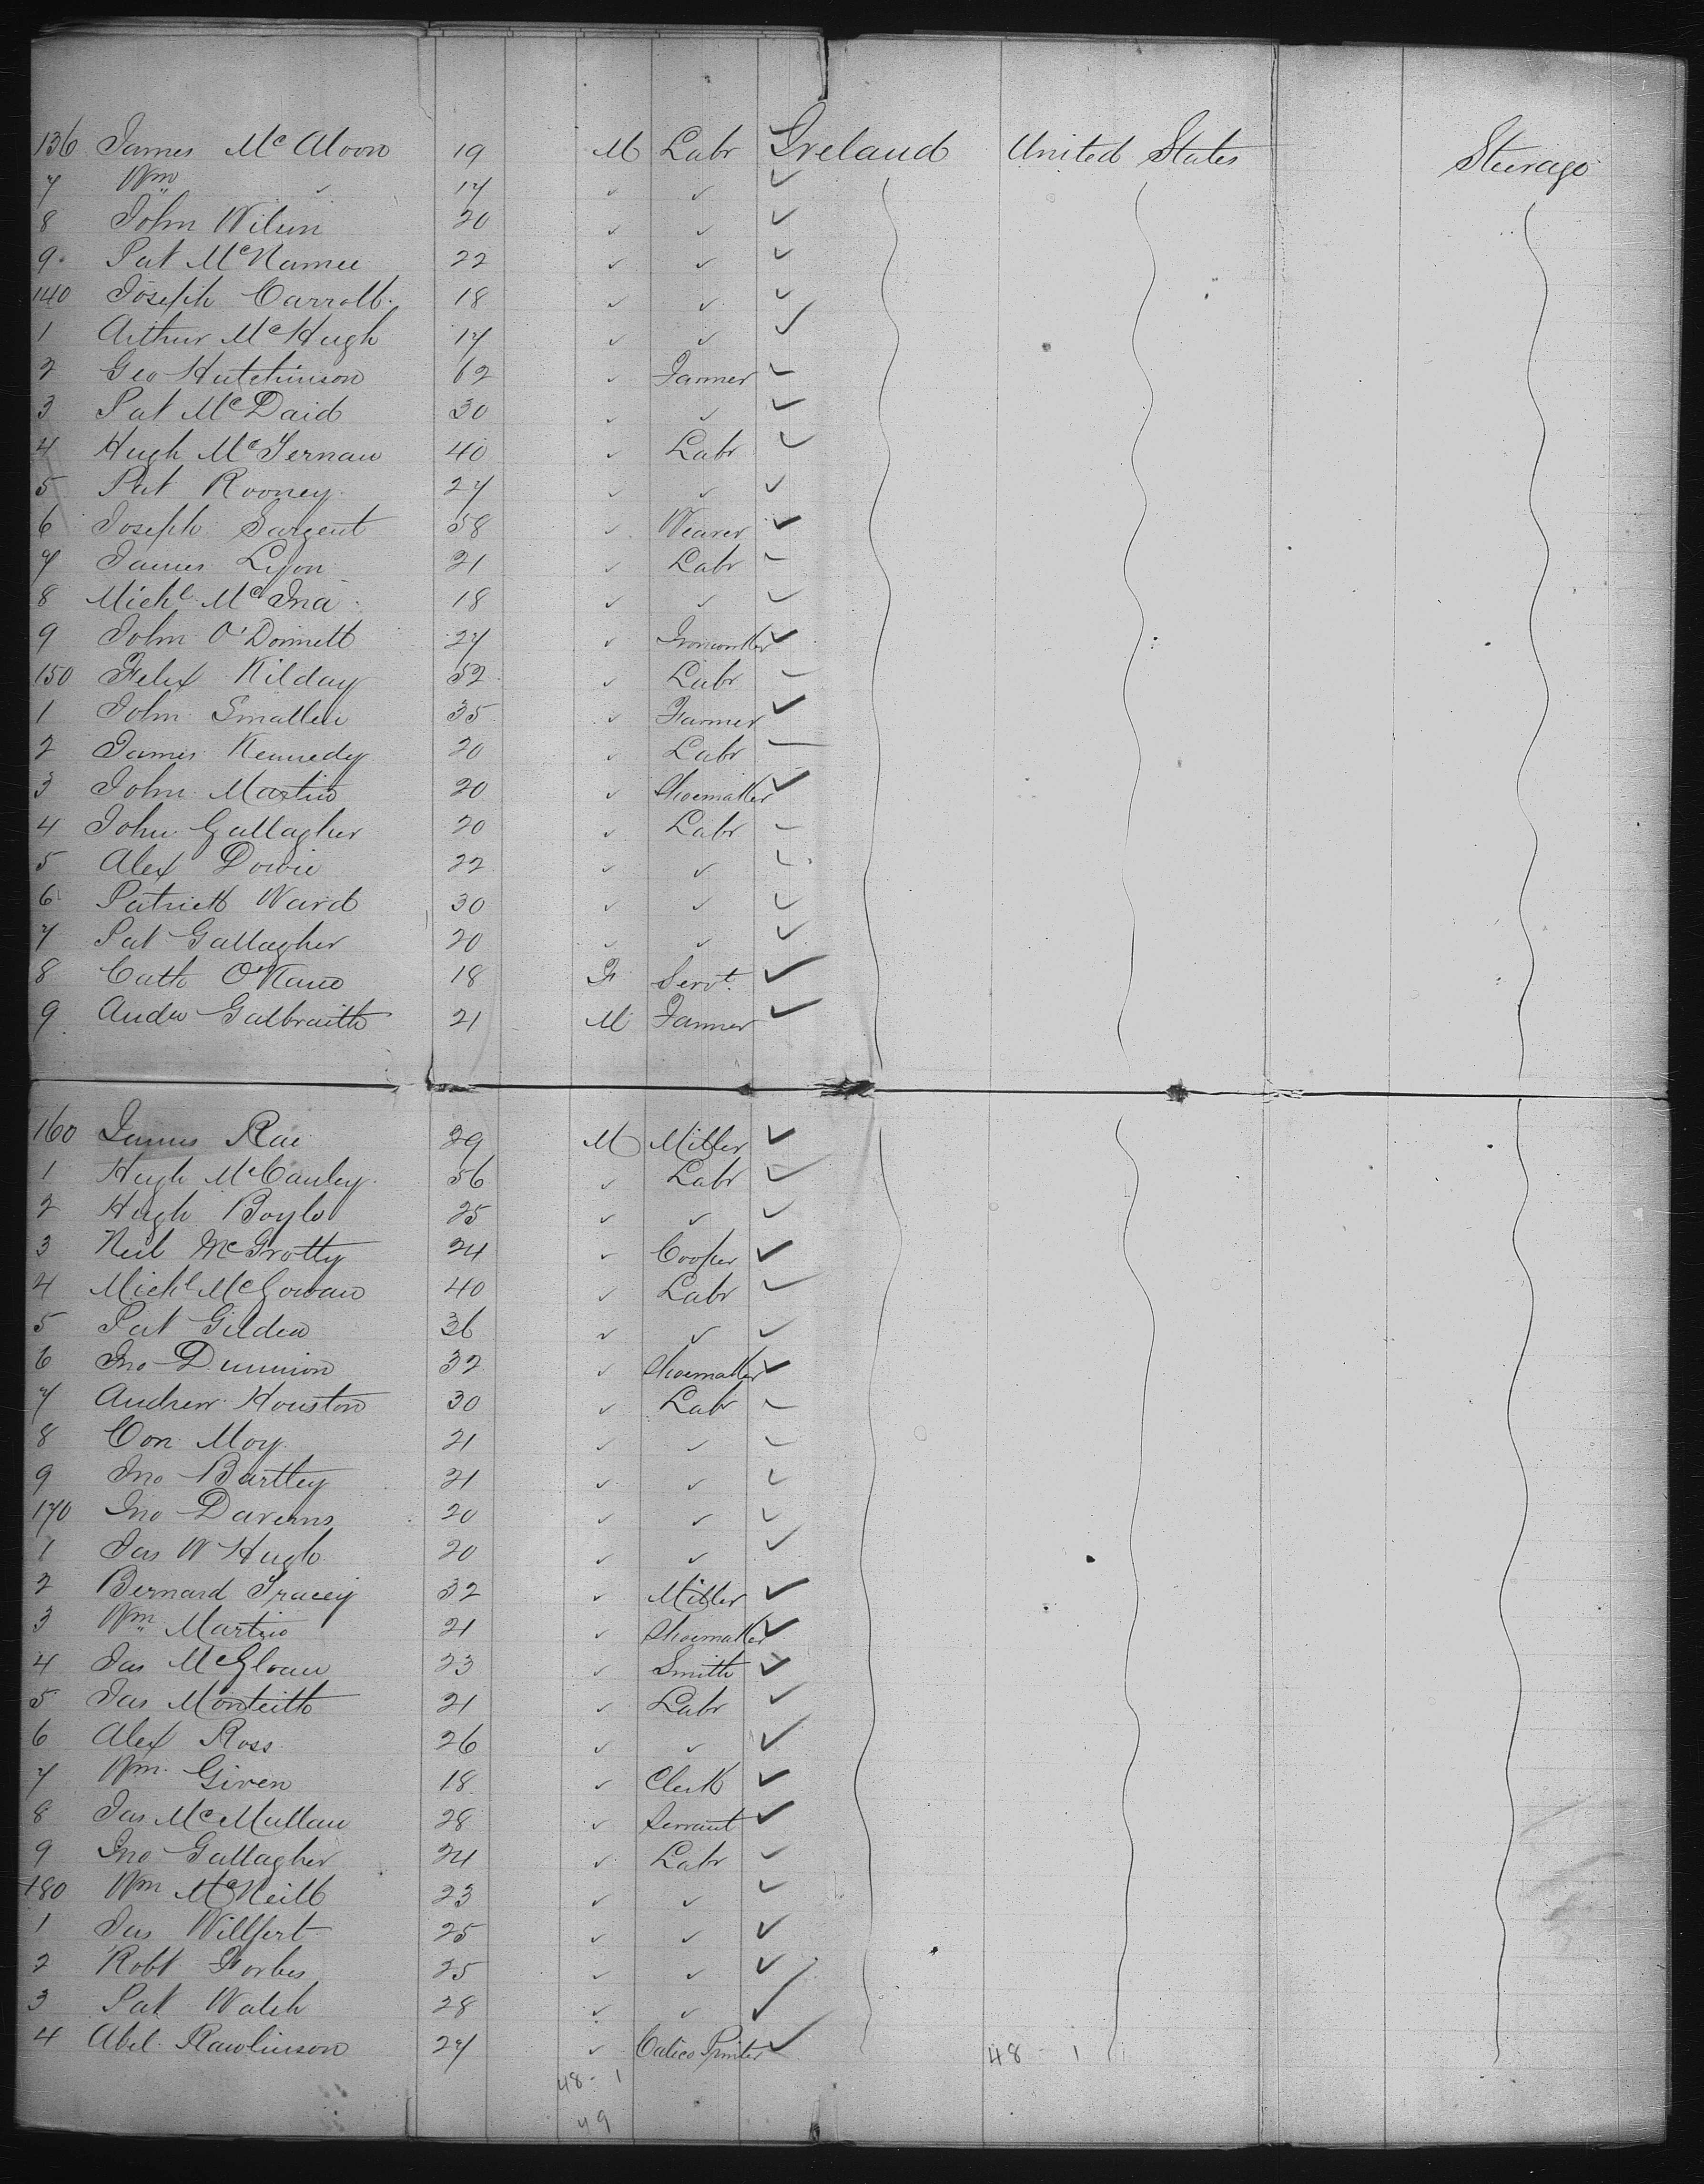 136 James McAloon 19 M Labr Ireland United States Steerage
7 Wm ✓ 17 ✓ ✓ ✓
8 John Wilson 20 ✓ ✓ ✓
9 Pat McNamee 22 ✓ ✓ ✓
140 Joseph Carroll 18 ✓ ✓ ✓
1 Arthur McHugh 17 ✓ ✓ ✓
2 Geo Hutchinson 62 ✓ Farmer ✓
3 Pat McDaid 30 ✓ ✓ ✓
4 Hugh McTernan 40 ✓ Labr ✓
5 Pat Rooney 27 ✓ ✓ ✓
6 Joseph Sargent 58 ✓ Weaver ✓
7 James Lyon 21 ✓ Labr ✓
8 Michl 18 ✓ ✓ ✓
9 John O'Donnell 27 ✓ ✓
150 Felix Kilday 52 ✓ Labr ✓
1 John Smallen 35 ✓ Farmer ✓
2 James Kennedy 20 ✓ Labr ✓
3 John Martin 20 ✓ Shoemaker ✓
4 John Gallagher 20 ✓ Labr ✓
5 Alex Dowie 22 ✓ ✓ ✓
6 Patrick Ward 30 ✓ ✓ ✓
7 Pat Gallagher 20 ✓ ✓ ✓
8 Cath O'Kane 18 F Servt ✓
9 Andw Galbraith 21 M Farmer ✓
160 James Rae 29 M Miller ✓
1 Hugh McCauley 56 ✓ Labr ✓
2 Hugh Boyle 25 ✓ ✓ ✓
3 Neil McGrotty 24 ✓ Cooper ✓
4 Michl McGowan 40 ✓ Labr ✓
5 Pat Gildea 36 ✓ ✓ ✓
6 Jno Dunnion 32 ✓ Shoemaker ✓
7 Andrew Houston 30 ✓ Labr ✓
8 Con Moy 21 ✓ ✓ ✓
9 Jno Bartley 21 ✓ ✓ ✓
170 Jno Daverns 20 ✓ ✓ ✓
1 Jas W Hugh 20 ✓ ✓ ✓
2 Bernard Tracey 32 ✓ Miller ✓
3 Wm Martin 21 ✓ Shoemaker ✓
4 Jas McGloan 23 ✓ Smith ✓
5 Jas Monteith 21 ✓ Labr ✓
6 Alex Ross 26 ✓ ✓ ✓
7 Wm Given 18 ✓ Clerk ✓
8 Jas McMullan 28 ✓ Servant ✓
9 Jno Gallagher 24 ✓ Labr ✓
180 Wm McNeill 23 ✓ ✓ ✓
1 Jas Willfert 25 ✓ ✓ ✓
2 Robt Forbes 25 ✓ ✓ ✓
3 Pat Walsh 28 ✓ ✓ ✓
4 Abel Rawlinson 27 ✓ Calico Printer ✓
48 - 1 48 - 1
49